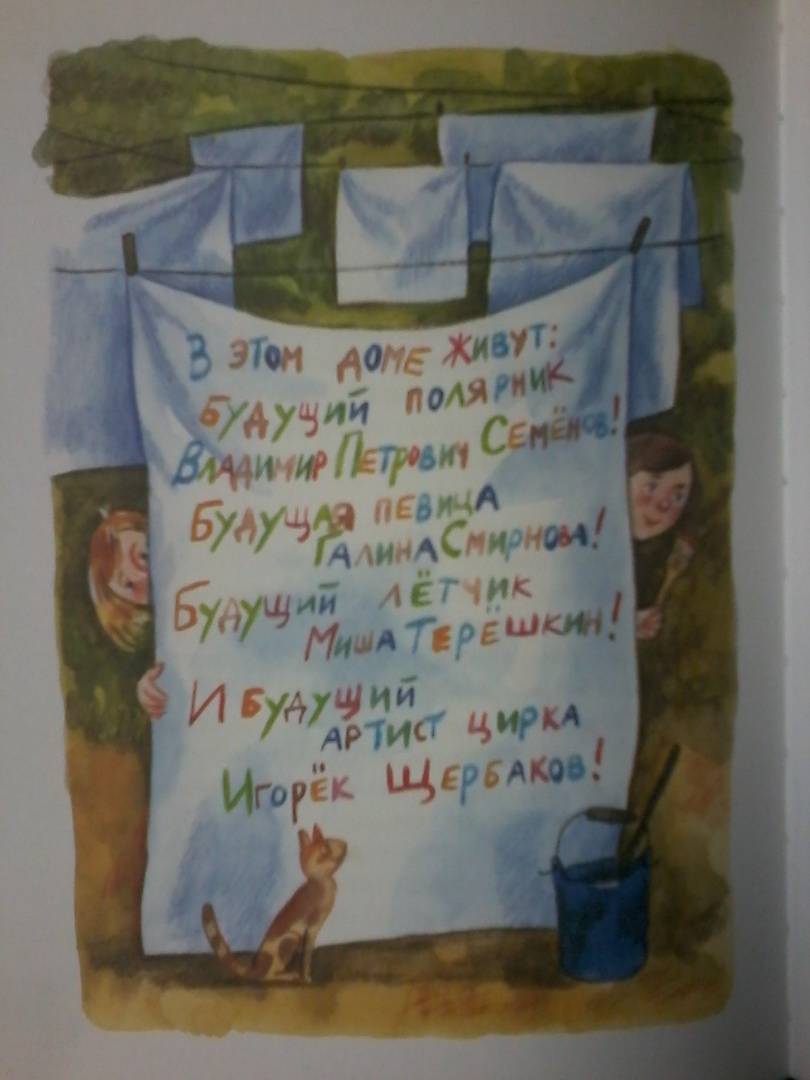 В этом доме живут:
Будущий полярник
Владимир Петрович Семёнов!
Будущая певица
Галина Смирнова!
Будущий лётчик
Миша Терёшкин!
И будущий
артист цирка
Игорёк Щербаков!